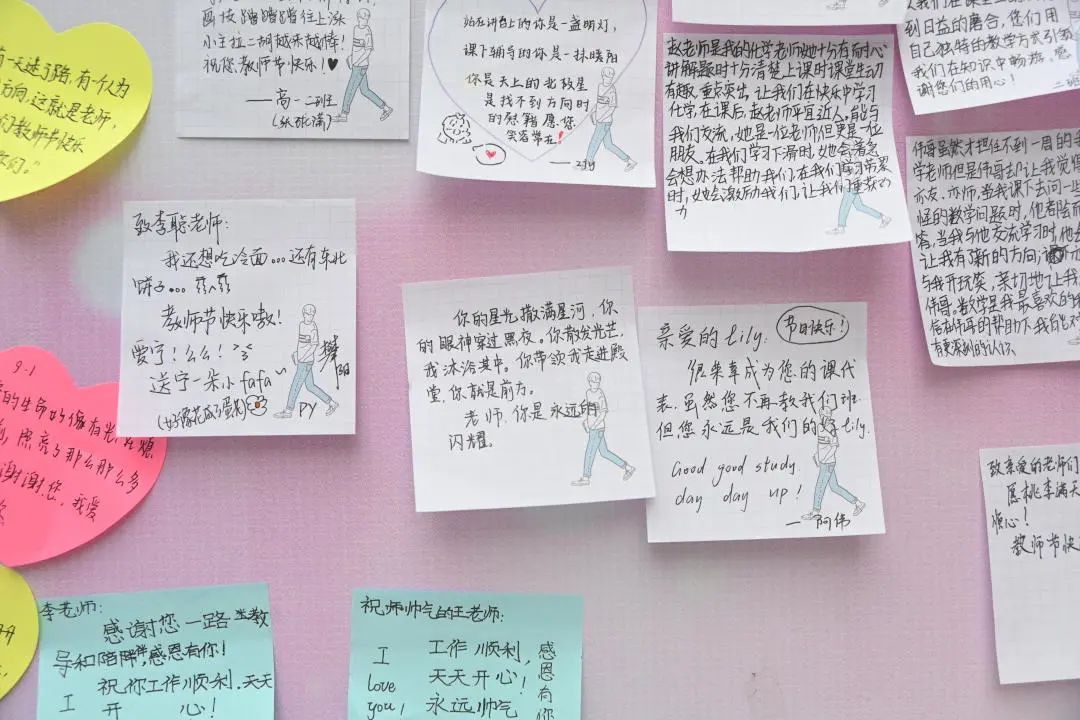 有一天迷了路,有个人为
方向,这就是老师,
们教师节快乐
往上涨
小主拉二胡越来越棒!
祝您教师节快乐!♥
——高一二班
站在讲台上的你是一盏明灯,
课下辅导的你是一抹暖阳
你是天上的北极星
是找不到方向时
的慰籍愿您
笑容常在!
赵老师是我的化学老师她十分有耐心
讲解题时十分清楚上课时课堂生动
有趣,重点突出,让我们在快乐中学习
化学,在课后,赵老师平宜近人,能与
我们交流,她是一位老师但更是一位
朋友。在我们学习下滑时,她会着急
会想办法帮助我们,在我们学习劳累
时,她会激励我们,让我们重获动
力
我们在课堂
到日益的磨合,您们用
自己独特的教学方式引领
我们在知识中畅游,感
谢您们的用心!
二班
伟哥虽然才担任不到一周的
学老师但是伟哥却让我觉
亦友,亦师,当我课下去问一些
怪的数学问题时,他者
答,当我与他交流学习时,他
让我有了新的方向;
与我开玩笑,亲切地让我
伟哥。数学是我最喜欢的
信在伟哥的帮助下我能对
有更深刻的认识
致李聪老师:
我还想吃冷面...还有东北
饼子...
教师节快乐嗷!
爱宁!么么!
送宁一朵小fafa~
PY
你的星光,撒满星河,你
的眼神穿过黑夜。你散发光芒,
我沐浴其中。你带领我走进殿
堂,你就是前方。
老师,你是永远的
闪耀。
节日快乐!
亲爱的lily:
很荣幸成为您的课代
表,虽然您不再教我们班
但您永远是我们的好lily.
Good good study.
day day up!
—阿伟
9.1
的生命好像有光
照亮了那么那么多
谢谢您,我爱
致亲爱的老师们
愿桃李满天
顺心!
教师节快
李老师:
感谢您一路
导和陪伴,感恩有你!
I 祝你工作顺利,天天
开心!
祝帅帅气的王老师:
I 工作顺利,
love 天天开心!
you, 永远帅气
感恩有你